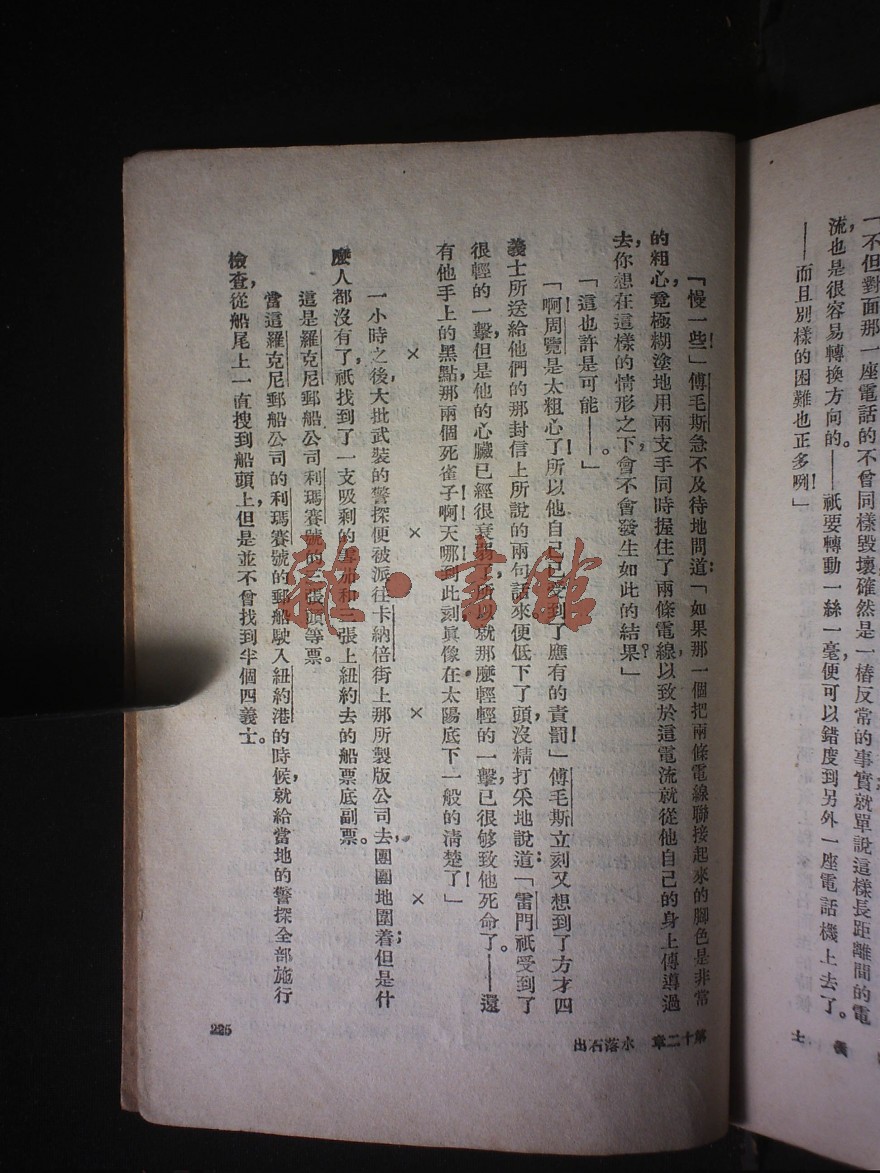 「不但對面那一座電話的不曾同樣毀壞，確然是一樁反常的事實；就單說這樣長距離間的電
流，也是很容易轉換方向的。——祇要轉動一絲一毫，便可以錯度到另外一座電話機上去了。
——而且別樣的困難也正多咧！」
義士
「慢一些！」傅毛斯急不及待地問道：「如果那一個把兩條電線聯接起來的脚色是非常
的粗心，竟極糊塗地用兩支手同時握住了兩條電線，以致於這電流就從他自己的身上傳導過
去，你想在這樣的情形之下，會不會發生如此的結果？」
「這也許是可能——。」
「啊！周覽是太粗心了！所以他自己已受到了應有的責罰！」傅毛斯立刻又想到了方才四
義士所送給他們的那封信上所說的兩句話來，便低下了頭，沒精打采地說道：「雷門祇受到了
很輕的一擊，但是他的心臟已經很衰弱了，所以就那麼輕輕的一擊，已很够致他死命了。——還
有他手上的黑點，那兩個死雀子！啊！天哪！到此刻眞像在太陽底下一般的清楚了！」
× × × ×
一小時之後，大批武裝的警探便被派往卡納倍街上那所製版公司去，團團地圍着；但是什
麼人都沒有了，祇找到了一支吸剩的雪茄和三張上紐約去的船票底副票。
這是羅克尼郵船公司利瑪賽號的三張頭等票。
當這羅克尼郵船公司的利瑪賽號的郵船駛入紐約港的時候，就給當地的警探全部施行
檢查，從船尾上一直搜到船頭上，但是並不曾找到半個四義士。
第十二章 水落石出
225
雜·書館